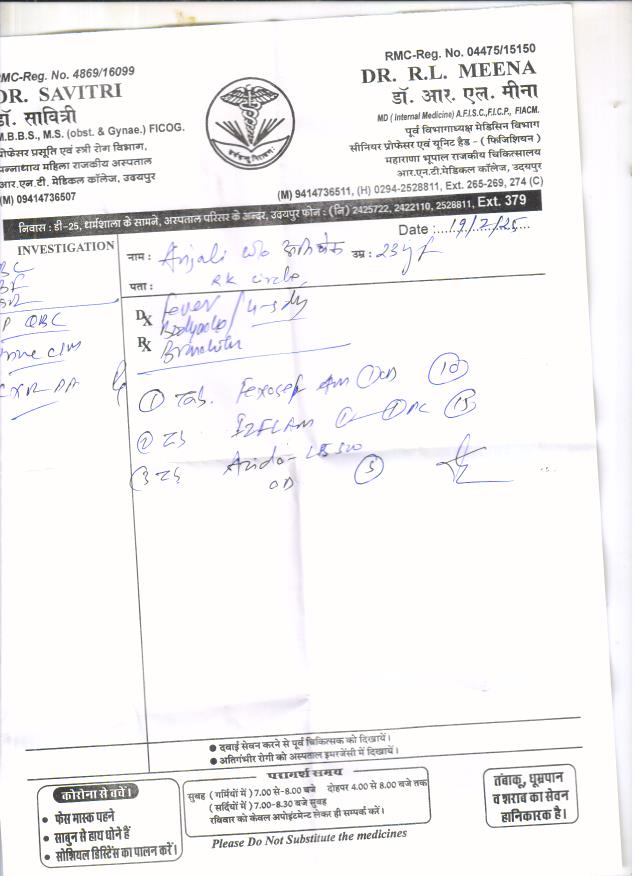 RMC-Reg. No. 4869/16099
DR. SAVITRI
डॉ. सावित्री
M.B.B.S., M.S. (obst. & Gynae.) FICOG.
प्रोफेसर प्रसूति एवं स्त्री रोग विभाग,
पन्नाधाय महिला राजकीय अस्पताल
आर.एन.टी. मेडिकल कॉलेज, उदयपुर
(M) 09414736507
RMC-Reg. No. 04475/15150
DR. R.L. MEENA
डॉ. आर. एल. मीना
MD ( Internal Medicine) A.F.I.S.C.,F.I.C.P., FIACM.
पूर्व विभागाध्यक्ष मेडिसिन विभाग
सीनियर प्रोफेसर एवं यूनिट हैड - ( फिजिशियन )
महाराणा भूपाल राजकीय चिकित्सालय
आर.एन.टी.मेडिकल कॉलेज, उदयपुर
(M) 9414736511, (H) 0294-2528811, Ext. 265-269, 274 (C)
निवास : डी-25, धर्मशाला के सामने, अस्पताल परिसर के अन्दर, उदयपुर फोन : (नि) 2425722, 2422110, 2528811, Ext. 379
Date : 19/2/25
INVESTIGATION
नाम : Anjali w/o उम्र : 23 y f
पता : RK circle
Dx Fever / 4-5 dy
Bodyache
Rx
P QBC
CXR PA
① Tab. ① OD ⑩
②
③ Azido- 500
OD ⑤
● दवाई सेवन करने से पूर्व चिकित्सक को दिखायें।
● अतिगंभीर रोगी को अस्पताल इमरजेंसी में दिखायें।
कोरोना से बचें।
• फेस मास्क पहने
• साबुन से हाथ धोने हैं
• सोशियल डिस्टेंस का पालन करें।
परामर्श समय
सुबह ( गर्मियों में ) 7.00 से-8.00 बजे दोहपर 4.00 से 8.00 बजे तक
( सर्दियों में ) 7.00-8.30 बजे सुबह
रविवार को केवल अपोइंटमेन्ट लेकर ही सम्पर्क करें।
तंबाकू, धूम्रपान
व शराब का सेवन
हानिकारक है।
Please Do Not Substitute the medicines